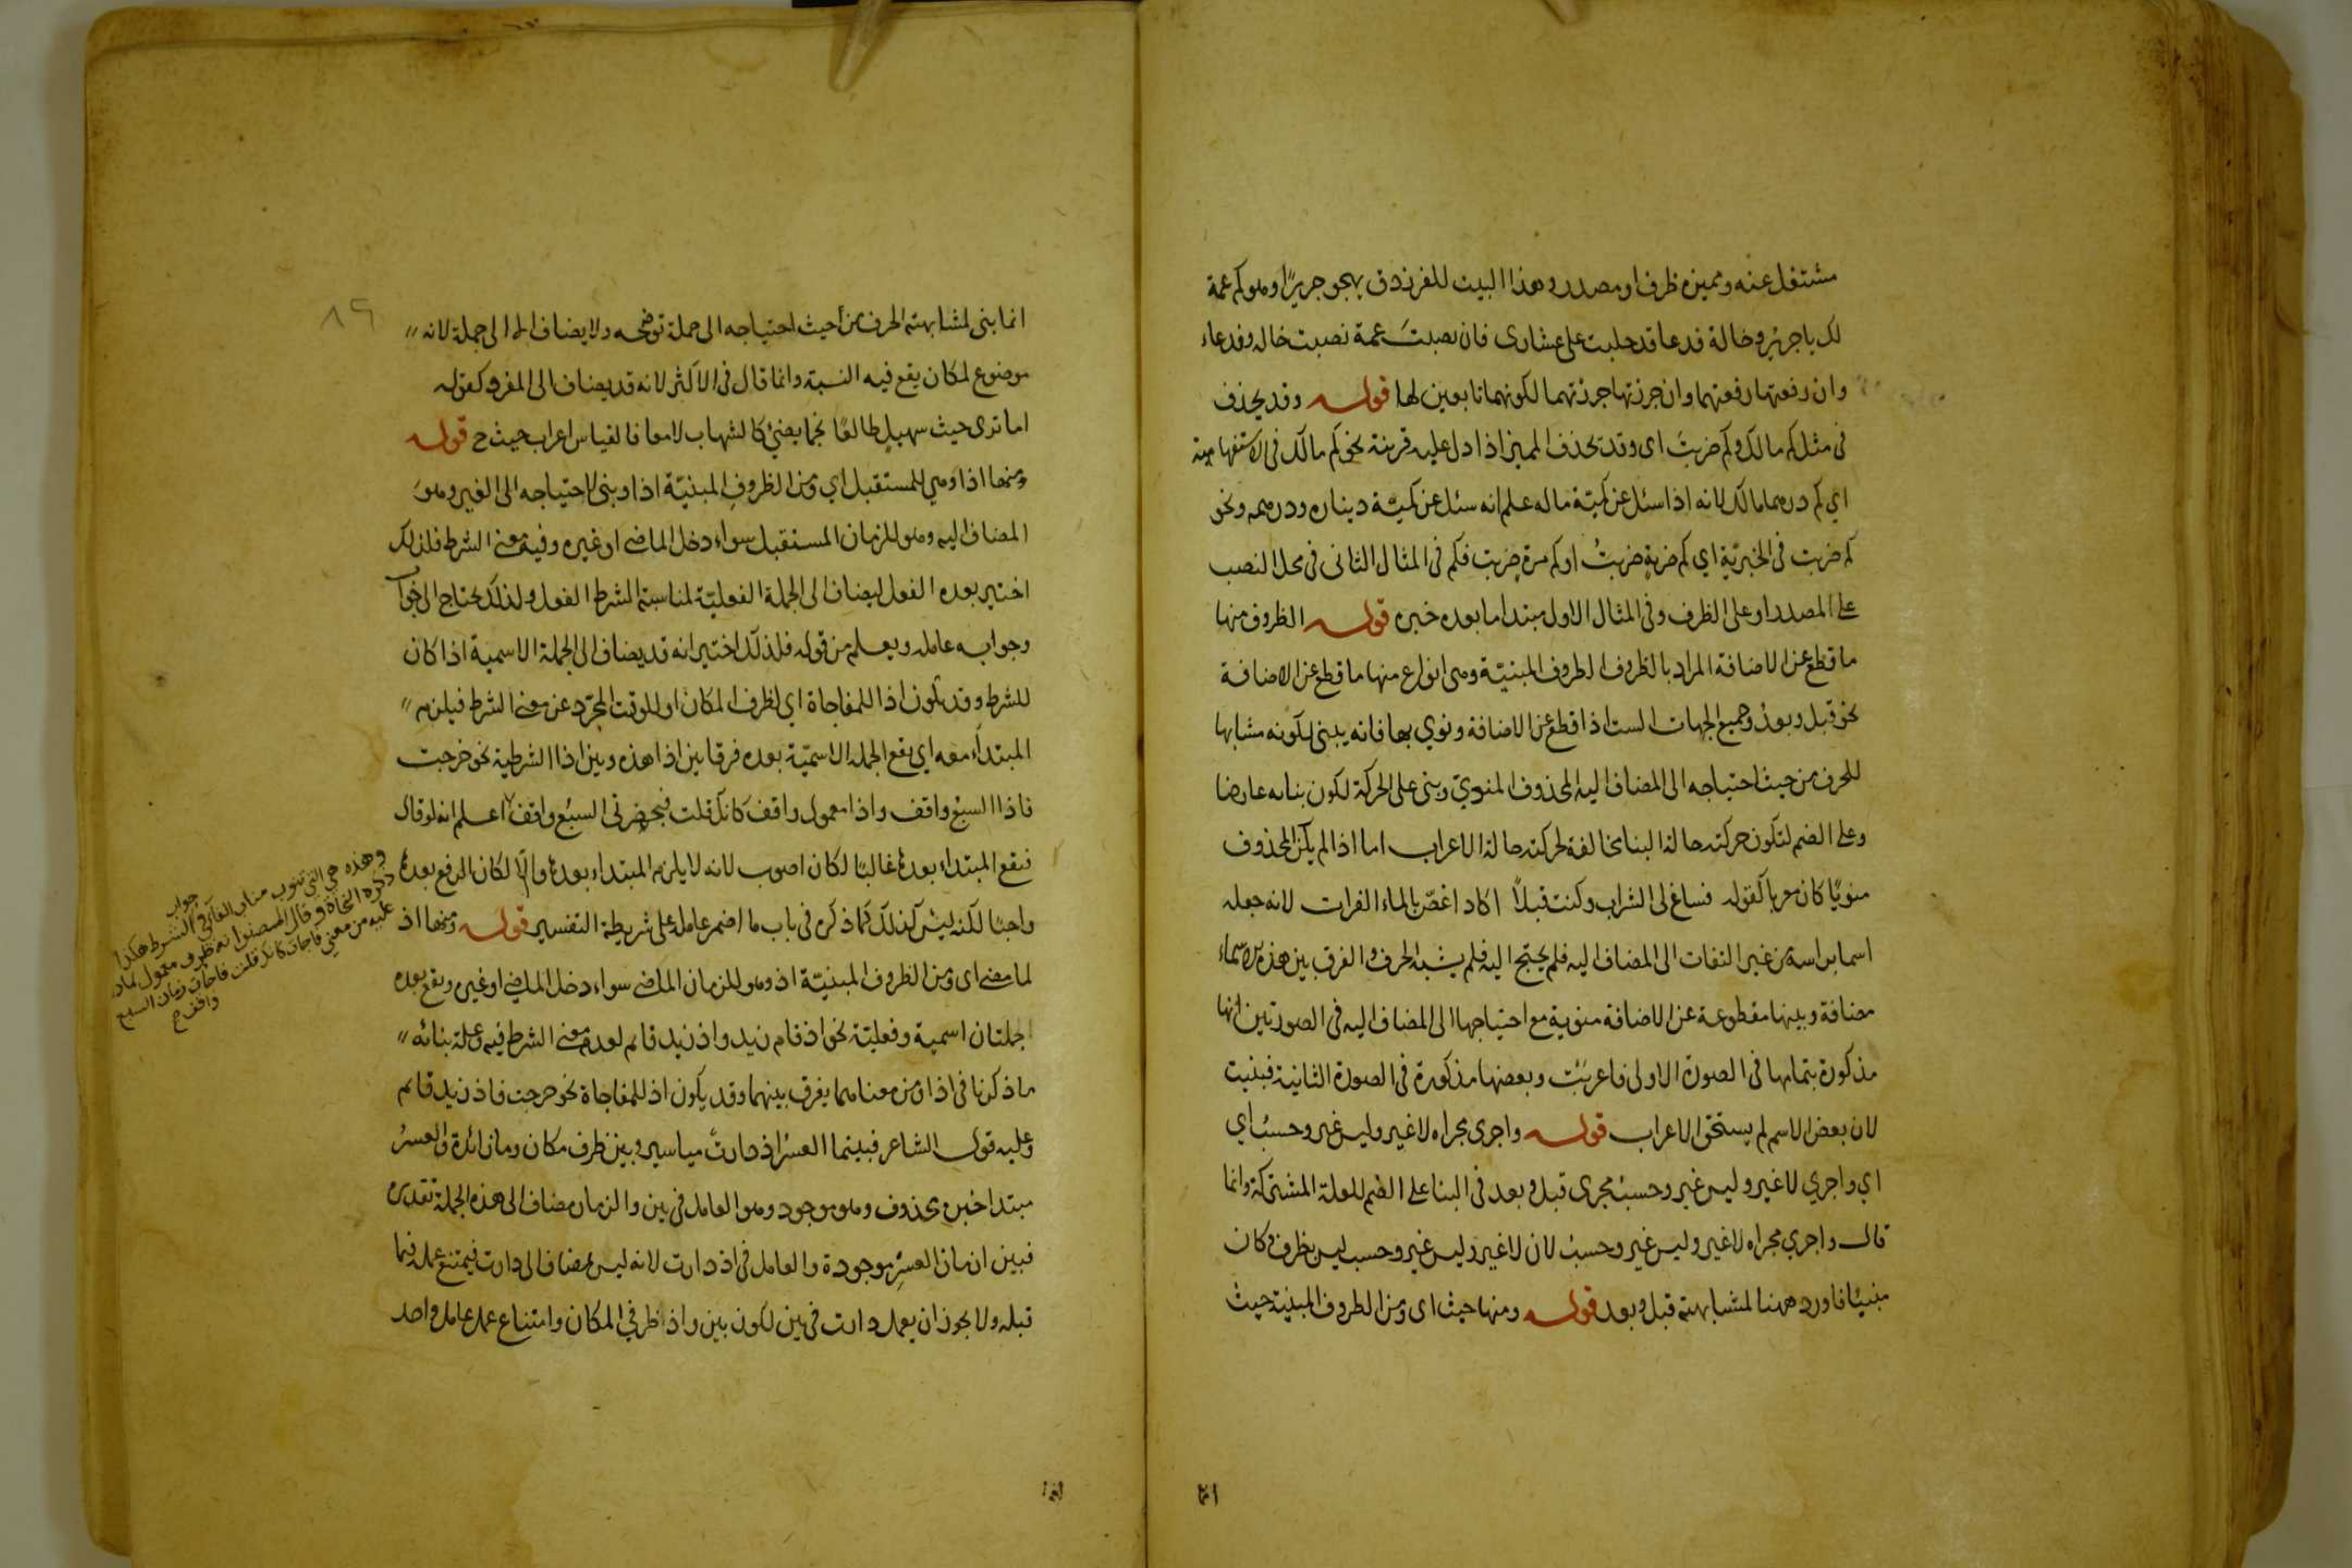 مشتغل عنه ومميزه ظرف او مصدر وهذا البيت للفرزدق يهجو جريرًا وهو كم عمة
لك يا جرير وخالة فدعا قد حلبت على عشارى فان نصبت عمة نصبت خاله وفدعاء
وان رفعتها رفعتهما وان جررتها جررتهما لكونهما تابعين لها قوله وقد يحذف
فى مثل كم مالك وكم ضربت اى وقد يحذف المميز اذا دل عليه قرينة نحو كم مالك فى الاستفهامية
اي كم درهما مالك لانه اذا سئل عن كمية ماله علم انه سئل عن كمية ديناره ودرهمه ونحو
كم ضربت فى الخبرية اي كم ضربة ضربتُ او كم مرة ضربت فكم فى المثال الثانى فى محل النصب
على المصدر او على الظرف وفى المثال الاول مبتدا ما بعده خبره قوله الظروف منها
ما قطع عن الاضافة المراد بالظروف الظروف المبنيّة وهى انواع منها ما قطع عن الاضافة
نحو قبل وبعد وجميع الجهات الست اذا قطع عن الاضافة ونوي بها فانه يبنى لكونه مشابها
للحرف من حيث احتياجه الى المضاف اليه المحذوف المنويّ وبنى على الحركة لكون بنائه عارضا
وعلى الضم لتكون حركته حالة البنا مخالفة لحركته حالة الاعراب اما اذا لم يكن المحذوف
منويًا كان معربا كقوله فساغ لى الشراب وكنت قبلًا اكاد اغصّ بالماء الفرات لانه جعله
اسما براسه من غير التفات الى المضاف اليه فلم يحتج اليه فلم يشبه الحرف والفرق بين هذه الاسماء
مضافة وبينها مقطوعة عن الاضافة منوية مع احتياجها الى المضاف اليه فى الصورتين انها
مذكورة بتمامها فى الصورة الاولى فاعربت وبعضها مذكورة فى الصورة الثانية فبنيت
لان بعض الاسم لم يستحق الاعراب قوله واجرى مجراه لا غير وليس غير وحسبُ اي
اي واجري لا غير وليس غير وحسبُ مجرى قبل وبعد فى البنا على الضم للعلة المشتركة وانما
قال واجري مجراه لا غير وليس غير وحسبُ لان لا غير وليس غير وحسب ليس بظرف وكان
مبنيًا فاورد ههنا لمشابهته قبل وبعد قوله ومنها حيث اى ومن الظروف المبنية حيث
انما
٨٩
انما بنى لمشابهته الحرف من حيث احتياجه الى جملة توضحه ولا يضاف الا الى جملة لانه
موضوع لمكان يقع فيه النسبة وانما قال فى الاكثر لانه قد يضاف الى المفرد كقوله
اما ترى حيث سهيلٍ طالعًا نجما يضئ كالشهاب لامعا فالقياس اعراب حيث ح قوله
ومنها اذا وهي للمستقبل اي ومن الظروف المبنيّة اذا وبنى لاحتياجه الى الغير وهو
المضاف اليه وهو للزمان المستقبل سواء دخل الماضى او غيره وفيه معنى الشرط فلذلك
اختير بعده الفعل ليضاف الى الجملة الفعليّة لمناسبته الشرط الفعل ولذلك يحتاج الى جواب
وجوابه عامله ويعلم من قوله فلذلك اختير انه قد يضاف الى الجملة الاسمية اذا كان
للشرط وقد تكون اذا للمفاجاة اي لظرف المكان او للوقت المجرّد عن معنى الشرط فيلزمه
المبتداء معه اي يقع الجملة الاسمّية بعده فرقا بين اذا هذه وبين اذا الشرطية نحو خرجت
فاذا السبع واقف واذا معمول واقف كانك قلت فبحضرتى السبع واقف اعلم انه لو قال
فيقع المبتداء بعدها غالبًا لكان اصوب لانه لا يلزم المبتداء بعدها والّا لكان الرفع بعدها
واجبًا لكنه ليس كذلك كما ذكره فى باب ما اضمر عامله على شريطة التفسير قوله ومنها اذ
لما مضى اى ومن الظروف المبنيّة اذ وهو للزمان الماضى سواء دخل الماضى او غيره ويقع بعده
جملتان اسمية وفعليّة نحو اذ قام زيد واذ زيد قائم لعدم معنى الشرط فيه وعلة بنائه
ما ذكرنا فى اذا ومن معناهما يفرق بينهما وقد يكون اذ للمفاجاة نحو خرجت فاذ زيد قائم
وعليه قول الشاعر فبينما العسرُ اذ دارتْ مياسير وبين ظرف مكان وما زائدة والعسرُ
مبتدا خبره محذوف وهو موجود وهو العامل فى بين والزمان مضاف الى هذه الجملة تقديره
فبين ازمان العسرِ موجودة والعامل فى اذ دارت لانه ليس بمضاف الى دارت فيمتنع عمله فيما
قبله ولا يجوز ان يعمل دارت فى بين لكون بين واذ ظرفي المكان وامتناع عمل عامل واحد
وهذه هي التي تنوب مناب الفاء فى جواب الشرط هكذا
ذكره النحاة وقال المصنف انه ظرف معمول لما دل
عليه من معنى فاجات كانك قلت فاجات زمان السبع
واقف ح